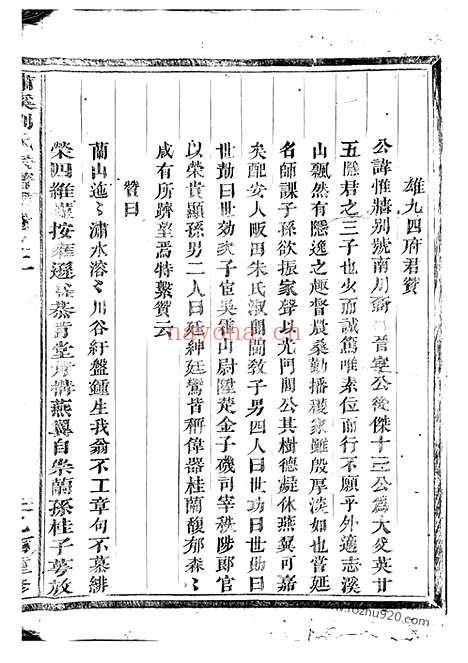 雄九四府君贊
公諱惟 別號南川裔 晉寧公後傑十三公爲大父英廿
五隱君之三子也少而誠篤唯素位而行不願乎外適志溪
山飄然有隱逸之趣督農桑勤播穫家雖殷厚淡如也嘗延
名師課子孫欲振家聲以光門閭公其樹德 休燕翼可嘉
矣配安人畈田朱氏淑闓閫教子男四人曰世功曰世勛曰
世勣曰世效次子宦吳 山尉陞楚金子磯司宰秩陟郎官
以榮貴顯孫男二人曰廷紳廷鸞皆稱偉器桂蘭馥郁森〻
咸有所躋望焉特繫贊云
贊曰
蘭山迤〻瀟水溶〻川谷紆盤鍾生我翁不工章句不慕緋
榮四維 按 遜 恭肯堂 構燕翼自崇蘭孫桂子夢放
nayona.cn
www.rozhu920.com